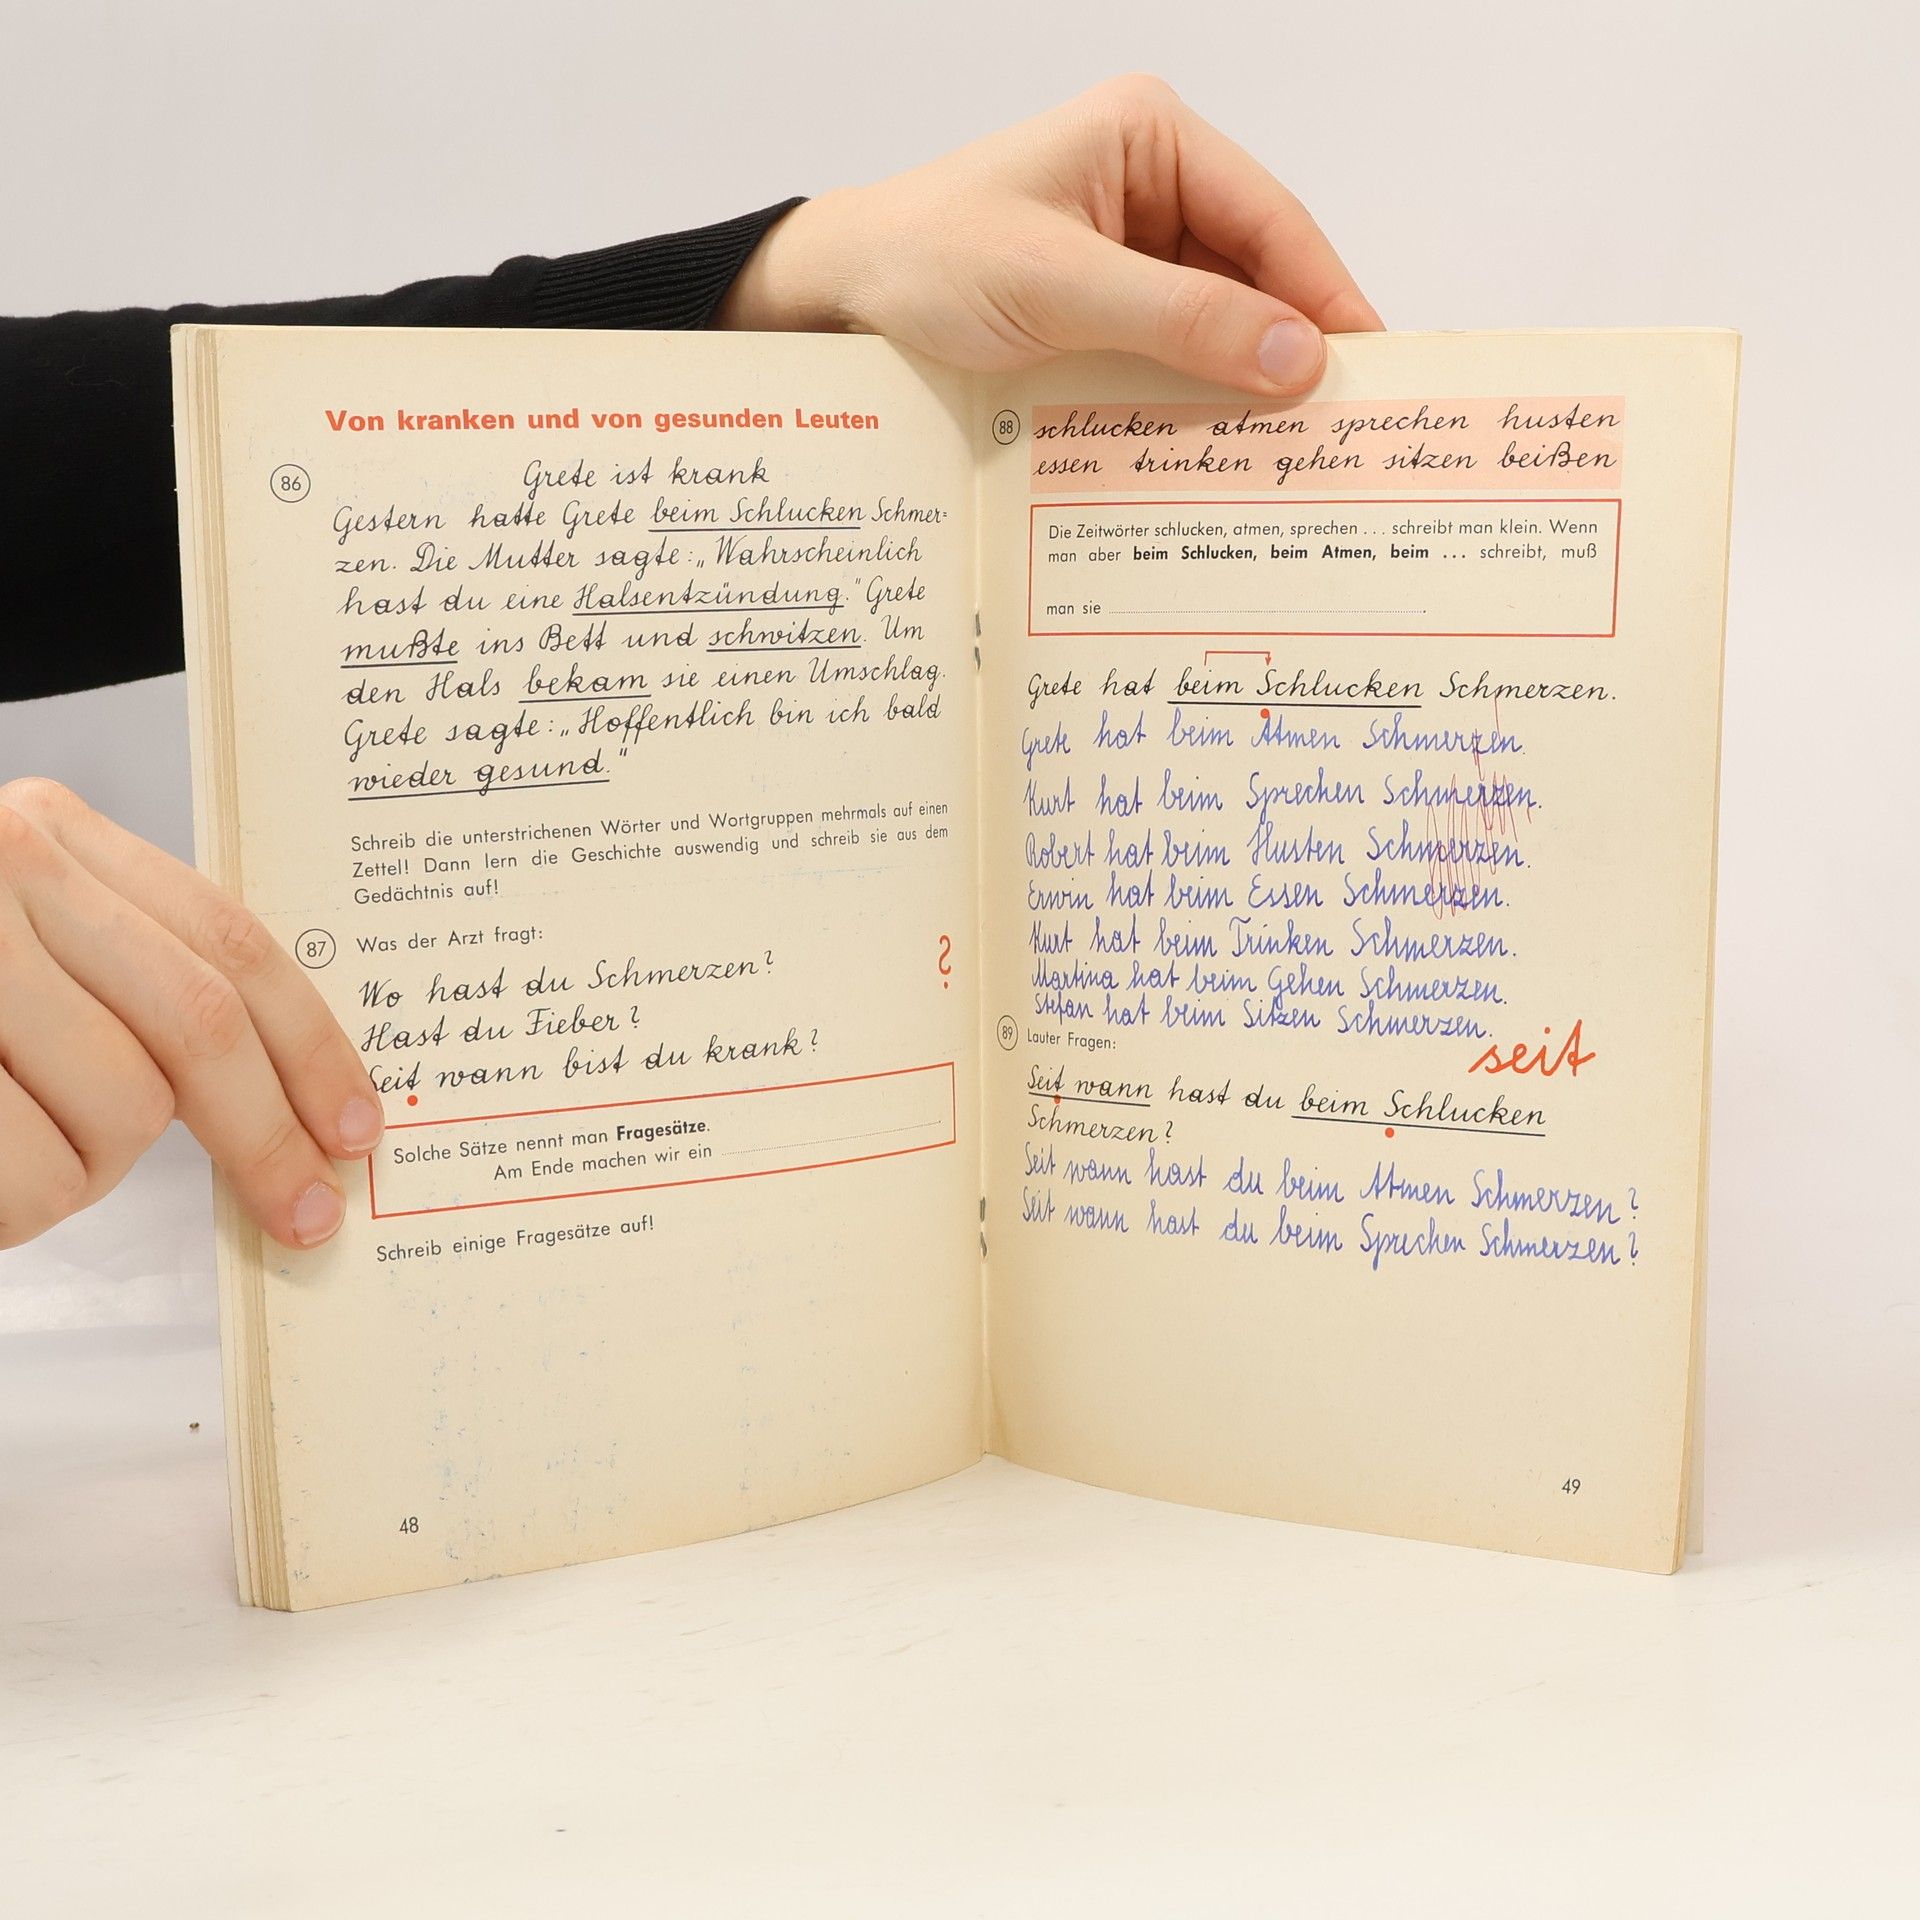 Von kranken und von gesunden Leuten
86
Grete ist krank
Gestern hatte Grete beim Schlucken Schmer=
zen. Die Mutter sagte: „Wahrscheinlich
hast du eine Halsentzündung." Grete
mußte ins Bett und schwitzen. Um
den Hals bekam sie einen Umschlag.
Grete sagte: „Hoffentlich bin ich bald
wieder gesund."
Schreib die unterstrichenen Wörter und Wortgruppen mehrmals auf einen
Zettel! Dann lern die Geschichte auswendig und schreib sie aus dem
Gedächtnis auf!
87 Was der Arzt fragt:
Wo hast du Schmerzen?
?
Hast du Fieber?
Seit wann bist du krank?
Solche Sätze nennt man Fragesätze.
Am Ende machen wir ein
Schreib einige Fragesätze auf!
48
88 schlucken atmen sprechen husten
essen trinken gehen sitzen beißen
Die Zeitwörter schlucken, atmen, sprechen ... schreibt man klein. Wenn
man aber beim Schlucken, beim Atmen, beim ... schreibt, muß
man sie .
Grete hat beim Schlucken Schmerzen.
Grete hat beim Atmen Schmerzen.
Kurt hat beim Sprechen Schmerzen.
Robert hat beim Husten Schmerzen.
Erwin hat beim Essen Schmerzen.
Kurt hat beim Trinken Schmerzen.
Martina hat beim Gehen Schmerzen.
Stefan hat beim Sitzen Schmerzen.
89 Lauter Fragen:
seit
Seit wann hast du beim Schlucken
Schmerzen?
Seit wann hast du beim Atmen Schmerzen?
Seit wann hast du beim Sprechen Schmerzen?
49